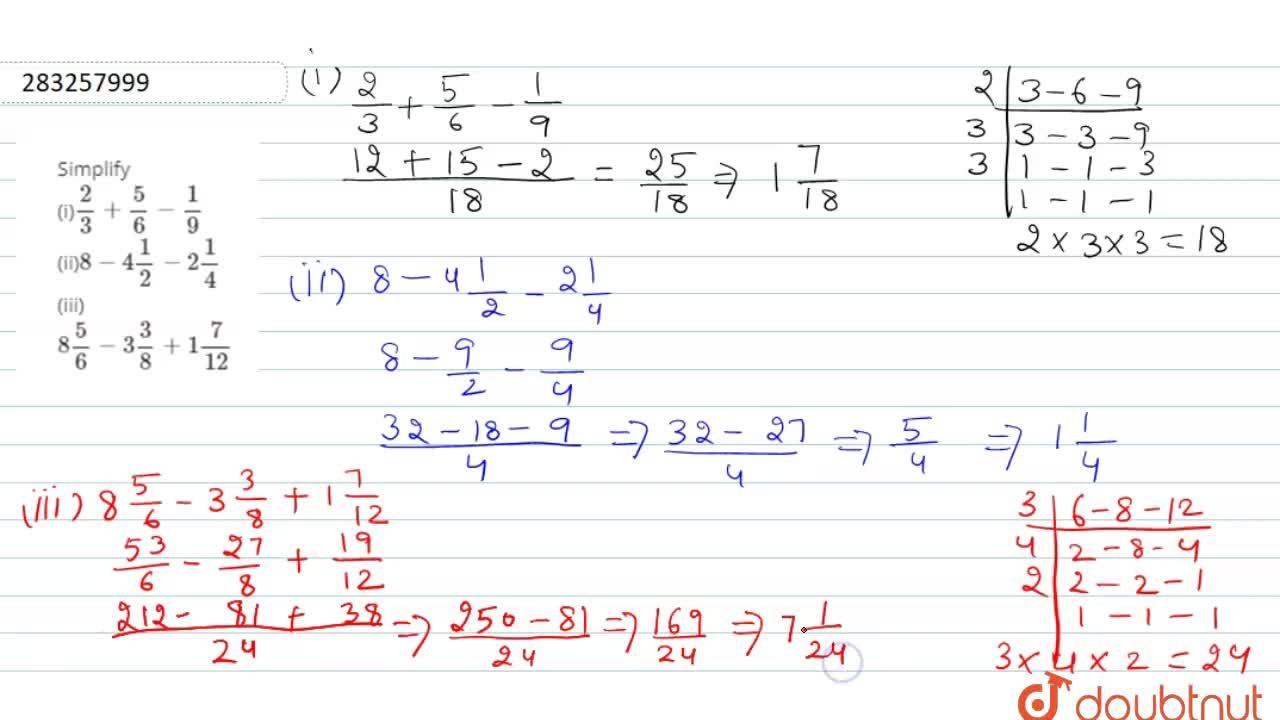 283257999
Simplify
(i) 2/3 + 5/6 − 1/9
(ii) 8 − 4 1/2 − 2 1/4
(iii)
8 5/6 − 3 3/8 + 1 7/12
(i) 2/3 + 5/6 − 1/9
(12 + 15 − 2)/18 = 25/18 ⇒ 1 7/18
2 | 3 − 6 − 9
3 | 3 − 3 − 9
3 | 1 − 1 − 3
| 1 − 1 − 1
2 × 3 × 3 = 18
(ii) 8 − 4 1/2 − 2 1/4
8 − 9/2 − 9/4
(32 − 18 − 9)/4 ⇒ (32 − 27)/4 ⇒ 5/4 ⇒ 1 1/4
(iii) 8 5/6 − 3 3/8 + 1 7/12
53/6 − 27/8 + 19/12
(212 − 81 + 38)/24 ⇒ (250 − 81)/24 ⇒ 169/24 ⇒ 7 1/24
3 | 6 − 8 − 12
4 | 2 − 8 − 4
2 | 2 − 2 − 1
| 1 − 1 − 1
3 × 4 × 2 = 24
doubtnut